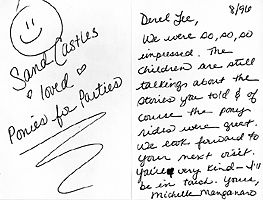 Sand Castles
loved
Ponies for Parties
8/96
Derel Lee,
We were so, so, so
impressed. The
children are still
talkings about the
stories you told & of
course the pony
rides were great.
We look forward to
your next visit.
You're very kind - I'll
be in touch. Yours,
Michelle Manganaro